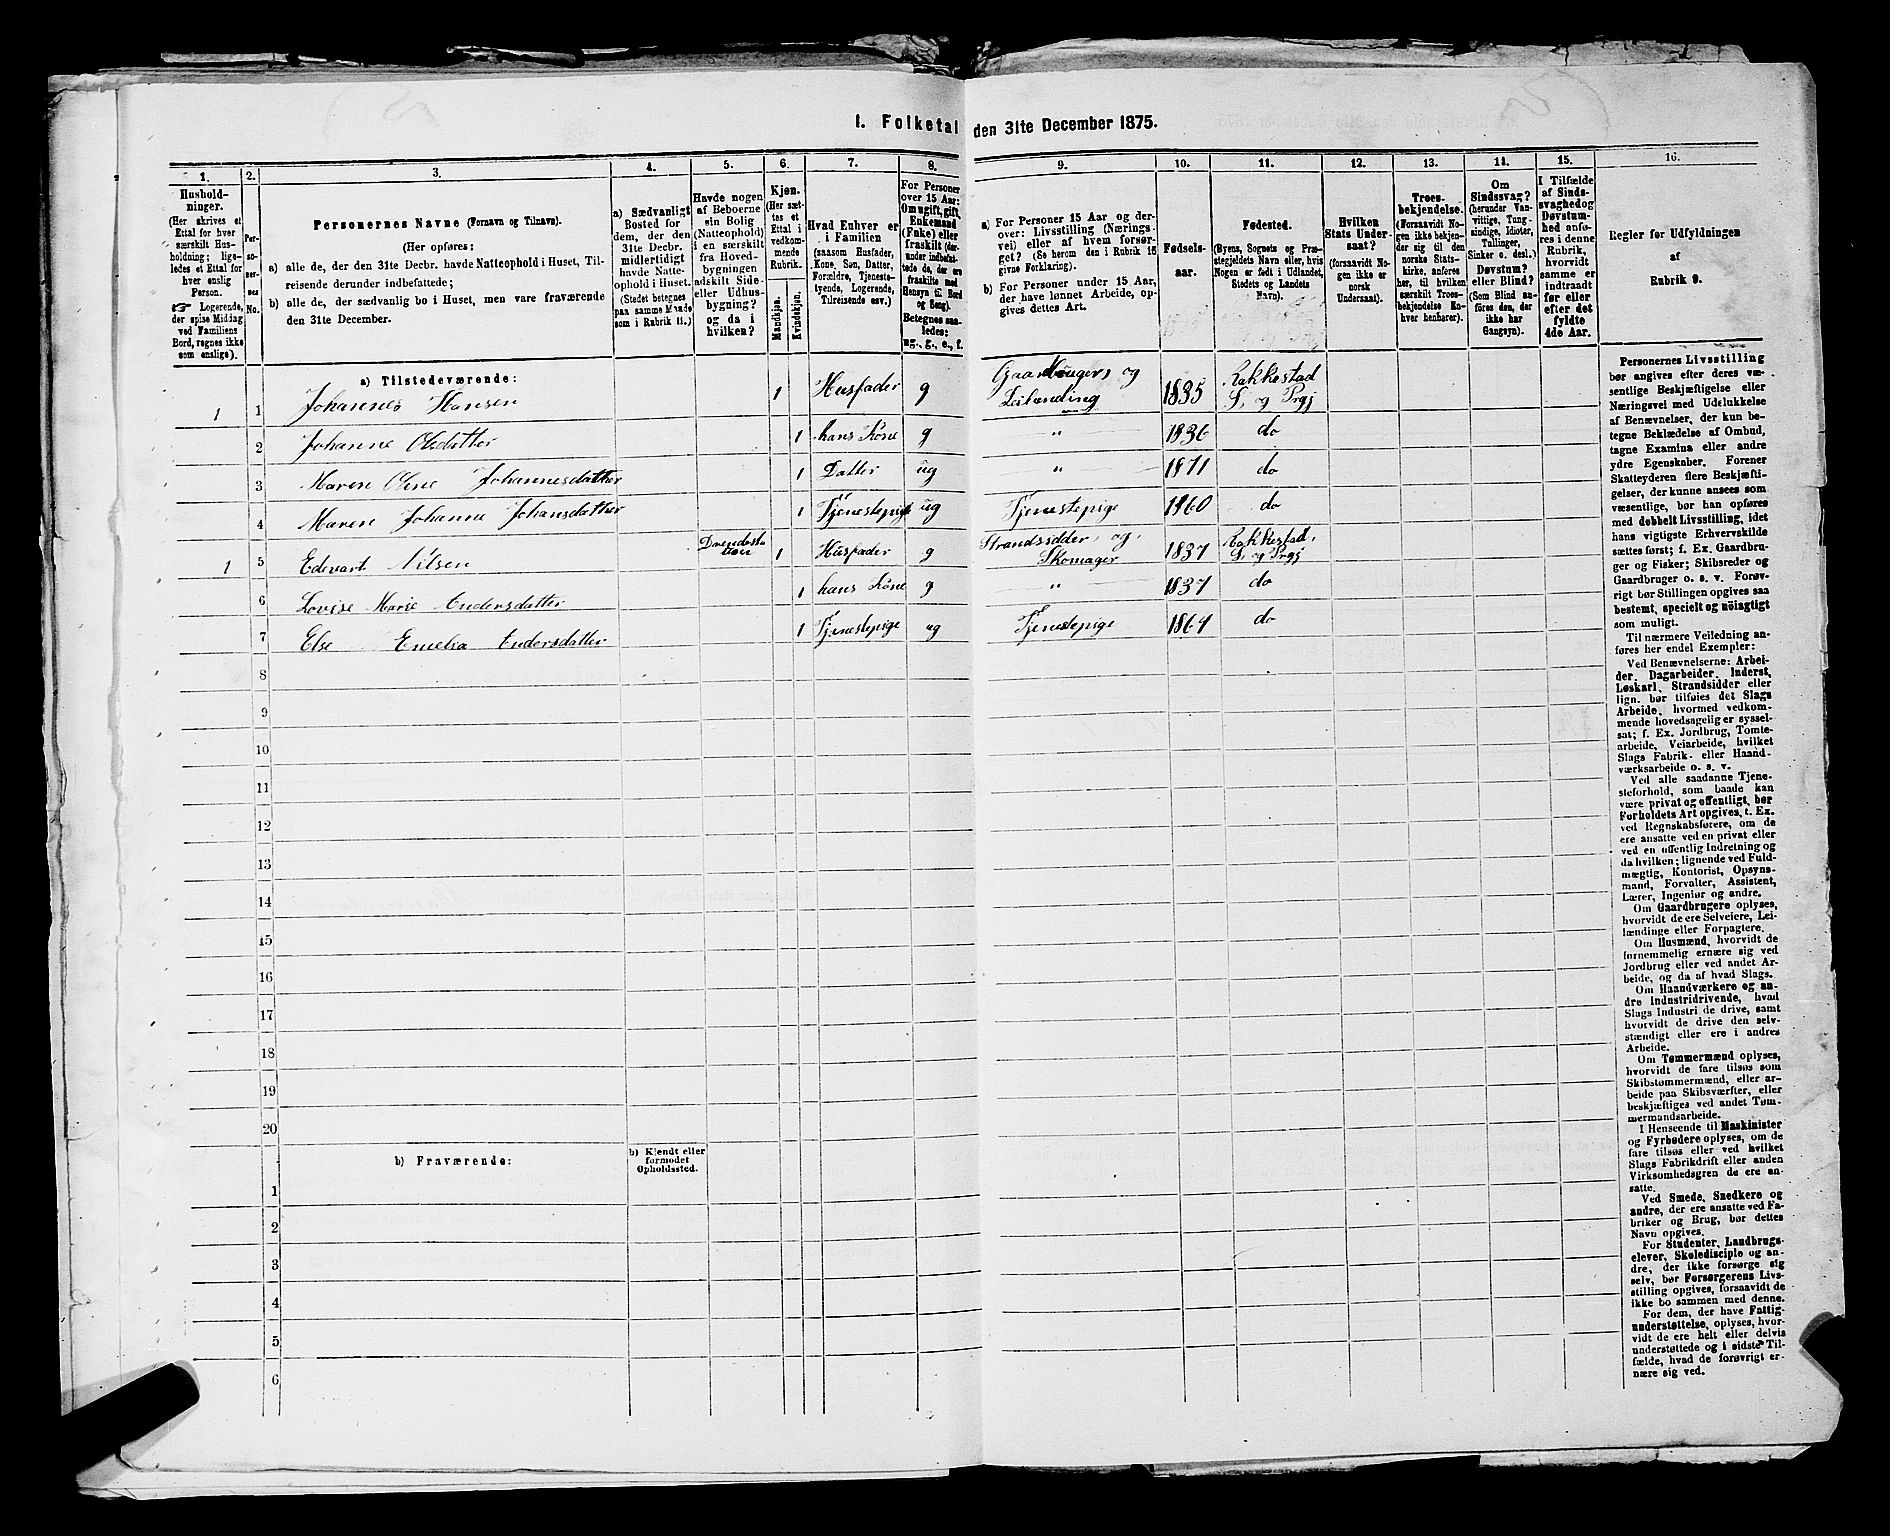 I. Folketal den 31te December 1875.
1. 2. 3. 4. 5. 6. 7. 8. 9. 10. 11. 12. 13. 14. 15. 16.
Hushold-
ninger.
(Her skrives et
Ettal for hver
særskilt Hus-
holdning; lige-
ledes et Ettal for
hver enslig
Person.
☞ Logerende,
der spise Middag
ved Familiens
Bord, regnes ikke
som enslige).
Per-
so-
ner-
nes
No.
Personernes Navne (Fornavn og Tilnavn).
(Her opføres:
a) alle de, der den 31te Decbr. havde Natteophold i Huset, Til-
reisende derunder indbefattede;
b) alle de, der sædvanlig bo i Huset, men vare fraværende
den 31te December.
a) Sædvanligt
Bosted for
dem, der den
31te Decbr.
midlertidigt
havde Natte-
ophold i Huset.
(Stedet betegnes
paa samme Maade
som i Rubrik 11.)
Havde nogen
af Beboerne
sin Bolig
(Natteophold)
i en særskilt
fra Hoved-
bygningen
adskilt Side-
eller Udhus-
bygning?
og da i
hvilken?
Kjøn.
(Her sæt-
tes et
Ettal i
vedkom-
mende
Rubrik.
Mandkjøn.
Kvindekjøn.
Hvad Enhver er
i Familien
(saasom Husfader,
Kone, Søn, Datter,
Forældre, Tjeneste-
tyende, Logerende,
Tilreisende osv.)
For Personer
over 15 Aar:
Om ugift, gift,
Enkemand
(Enke) eller
fraskilt (der-
under indbefat-
tede de, der ere
fraskilte med
Hensyn til Bord
og Seng).
Betegnes saa-
ledes:
ug., g., e., f.
a) For Personer 15 Aar og der-
over: Livsstilling (Nærings-
vei) eller af hvem forsør-
get? (Se herom den i Rubrik 16
givne Forklaring).
b) For Personer under 15 Aar,
der have lønnet Arbeide, op-
gives dettes Art.
Fødsels-
aar.
Fødested.
(Byens, Sognets og Præ-
stegjeldets Navn eller, hvis
Nogen er født i Udlandet,
Stedets og Landets
Navn).
Hvilken
Stats Under-
saat?
(forsaavidt No-
gen ikke er
norsk
Undersaat).
Troes-
bekjendelse.
(Forsaavidt No-
gen ikke bekjen-
der sig til den
norske Stats-
kirke, anføres
her, til hvilken
særskilt Troes-
bekjendelse En-
hver henhører).
Om
Sindssvag?
(herunder Van-
vittige, Tung-
sindige, Idioter,
Tullinger,
Sinker o. desl.)
Døvstum?
eller Blind?
(Som Blind an-
føres den, der
ikke har
Gangsyn).
I Tilfælde
af Sinds-
svaghed og
Døvstum-
hed anfø-
res i denne
Rubrik,
hvorvidt
samme er
indtraadt
før eller
efter det
fyldte
4de Aar.
Regler for Udfyldningen
af
Rubrik 9.
a) Tilstedeværende:
1 1 Johannes Hansen 1 Husfader g Gaardbruger og Leilænding 1835 Rakkestad S. og Prgj
2 Johanne Olsdatter 1 hans Kone g " 1836 do
3 Maren Oline Johannesdatter 1 Datter ug " 1871 do
4 Maren Johanne Johansdatter 1 Tjenestepige ug Tjenestepige 1860 do
1 5 Edevart Nilsen 1 Husfader g Strandsidder og Skomager 1837 Rakkestad S. og Prgj
6 Lovise Marie Andersdatter 1 hans Kone g " 1837 do
7 Else Emelia Andersdatter 1 Tjenestepige ug Tjenestepige 1864 do
8
9
10
11
12
13
14
15
16
17
18
19
20
b) Fraværende:
b) Kjendt eller
formodet
Opholdssted.
1
2
3
4
5
6
Personernes Livsstilling
bør angives efter deres væ-
sentlige Beskjæftigelse eller
Næringsvei med Udelukkelse
af Benævnelser, der kun be-
tegne Beklædelse af Ombud,
tagne Examina eller andre
ydre Egenskaber. Forener
Skatteyderen flere Beskjæfti-
gelser, der kunne ansees som
væsentlige, bør han opføres
med dobbelt Livsstilling, idet
hans vigtigste Erhvervskilde
sættes først; f. Ex. Gaardbru-
ger og Fisker; Skibsreder og
Gaardbruger o. s. v. Forøv-
rigt bør Stillingen opgives saa
bestemt, specielt og nøiagtigt
som muligt.
Til nærmere Veiledning an-
føres her endel Exempler:
Ved Benævnelserne: Arbei-
der, Dagarbeider, Inderst,
Løskarl, Strandsidder eller
lign. bør tilføies det Slags
Arbeide, hvormed vedkom-
mende hovedsagelig er syssel-
sat; f. Ex. Jordbrug, Tomte-
arbeide, Veiarbeide, hvilket
Slags Fabrik- eller Haand-
værksarbeide o. s. v.
Ved alle saadanne Tjene-
steforhold, som baade kan
være privat og offentligt, bør
Forholdets Art opgives, t. Ex.
ved Regnskabsførere, om de
ere ansatte ved en privat eller
ved en offentlig Indretning og
da hvilken; lignende ved Fuld-
mægtig, Kontorist, Opsyns-
mand, Forvalter, Assistent,
Lærer, Ingeniør og andre.
Om Gaardbrugere oplyses,
hvorvidt de ere Selveiere, Lei-
lændinge eller Forpagtere.
Om Husmænd, hvorvidt de
fornemmelig ernære sig ved
Jordbrug eller ved andet Ar-
beide, og da af hvad Slags.
Om Haandværkere og an-
dre Industridrivende, hvad
Slags Industri de drive, samt
hvorvidt de drive den selv-
stændigt eller ere i andres
Arbeide.
Om Tømmermænd oplyses,
hvorvidt de fare tilsøs som
Skibstømmermænd, eller ar-
beide paa Skibsværfter, eller
beskjæftiges ved andet Tøm-
mermandsarbeide.
I Henseende til Maskinister
og Fyrbødere oplyses, om de
fare tilsøs eller ved hvilket
Slags Fabrikdrift eller anden
Virksomhedsgren de ere an-
satte.
Ved Smede, Snedkere og
andre, der ere ansatte ved Fa-
briker og Brug, bør dettes
Navn opgives.
For Studenter, Landbrugs-
elever, Skoledisciple og an-
dre, der ikke forsørge sig
selv, bør Forsørgerens Livs-
stilling opgives, forsaavidt de
ikke bo sammen med denne.
For dem, der have Fattig-
understøttelse, oplyses, hvor-
vidt de ere helt eller delvis
understøttede og i sidste Til-
fælde, hvad de forøvrigt er-
nære sig ved.